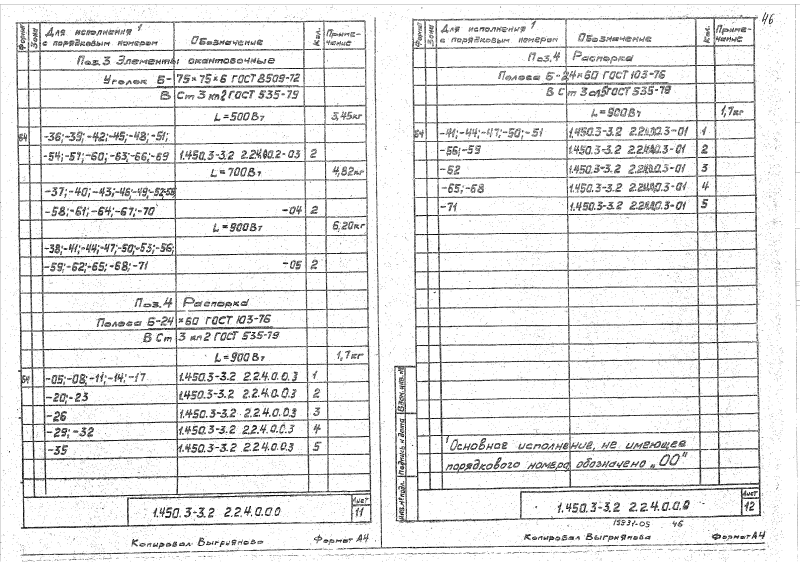 46
Формат
Зона
Для исполнения 1 с порядковым номером
Обозначение
Кол.
Примечание
Поз.3 Элементы окантовочные
Уголок Б-75×75×6 ГОСТ 8509-72
В Ст 3 кп2 ГОСТ 535-79
L=500 Вт 3,45кг
Б4 -36;-39;-42;-45;-48;-51;
-54;-57;-60;-63;-66;-69 1.450.3-3.2 2.2.4.0.0.2-03 2
L=700 Вт 4,82кг
-37;-40;-43;-46;-49;-52;-55;
-58;-61;-64;-67;-70 -04 2
L=900 Вт 6,20кг
-38;-41;-44;-47;-50;-53;-56;
-59;-62;-65;-68;-71 -05 2
Поз.4 Распорка
Полоса Б-24×60 ГОСТ 103-76
В Ст 3 кп2 ГОСТ 535-79
L=900 Вт 1,7кг
Б4 -05;-08;-11;-14;-17 1.450.3-3.2 2.2.4.0.0.3 1
-20;-23 1.450.3-3.2 2.2.4.0.0.3 2
-26 1.450.3-3.2 2.2.4.0.0.3 3
-29;-32 1.450.3-3.2 2.2.4.0.0.3 4
-35 1.450.3-3.2 2.2.4.0.0.3 5
1.450.3-3.2 2.2.4.0.0.0
Лист
11
Копировал Выгриянова Формат А4
Формат
Зона
Для исполнения 1 с порядковым номером
Обозначение
Кол.
Примечание
Поз.4 Распорка
Полоса Б-24×60 ГОСТ 103-76
В Ст 3 ГОСТ 535-79
L=900 Вт 1,7кг
Б4 -41;-44;-47;-50;-51 1.450.3-3.2 2.2.4.0.0.3-01 1
-56;-59 1.450.3-3.2 2.2.4.0.0.3-01 2
-62 1.450.3-3.2 2.2.4.0.0.3-01 3
-65;-68 1.450.3-3.2 2.2.4.0.0.3-01 4
-71 1.450.3-3.2 2.2.4.0.0.3-01 5
1 Основное исполнение, не имеющее
порядкового номера обозначено „00"
Инв.№подл. Подпись и дата Взам.инв.№
1.450.3-3.2 2.2.4.0.0.0
Лист
12
-05 46
Копировал Выгриянова Формат А4